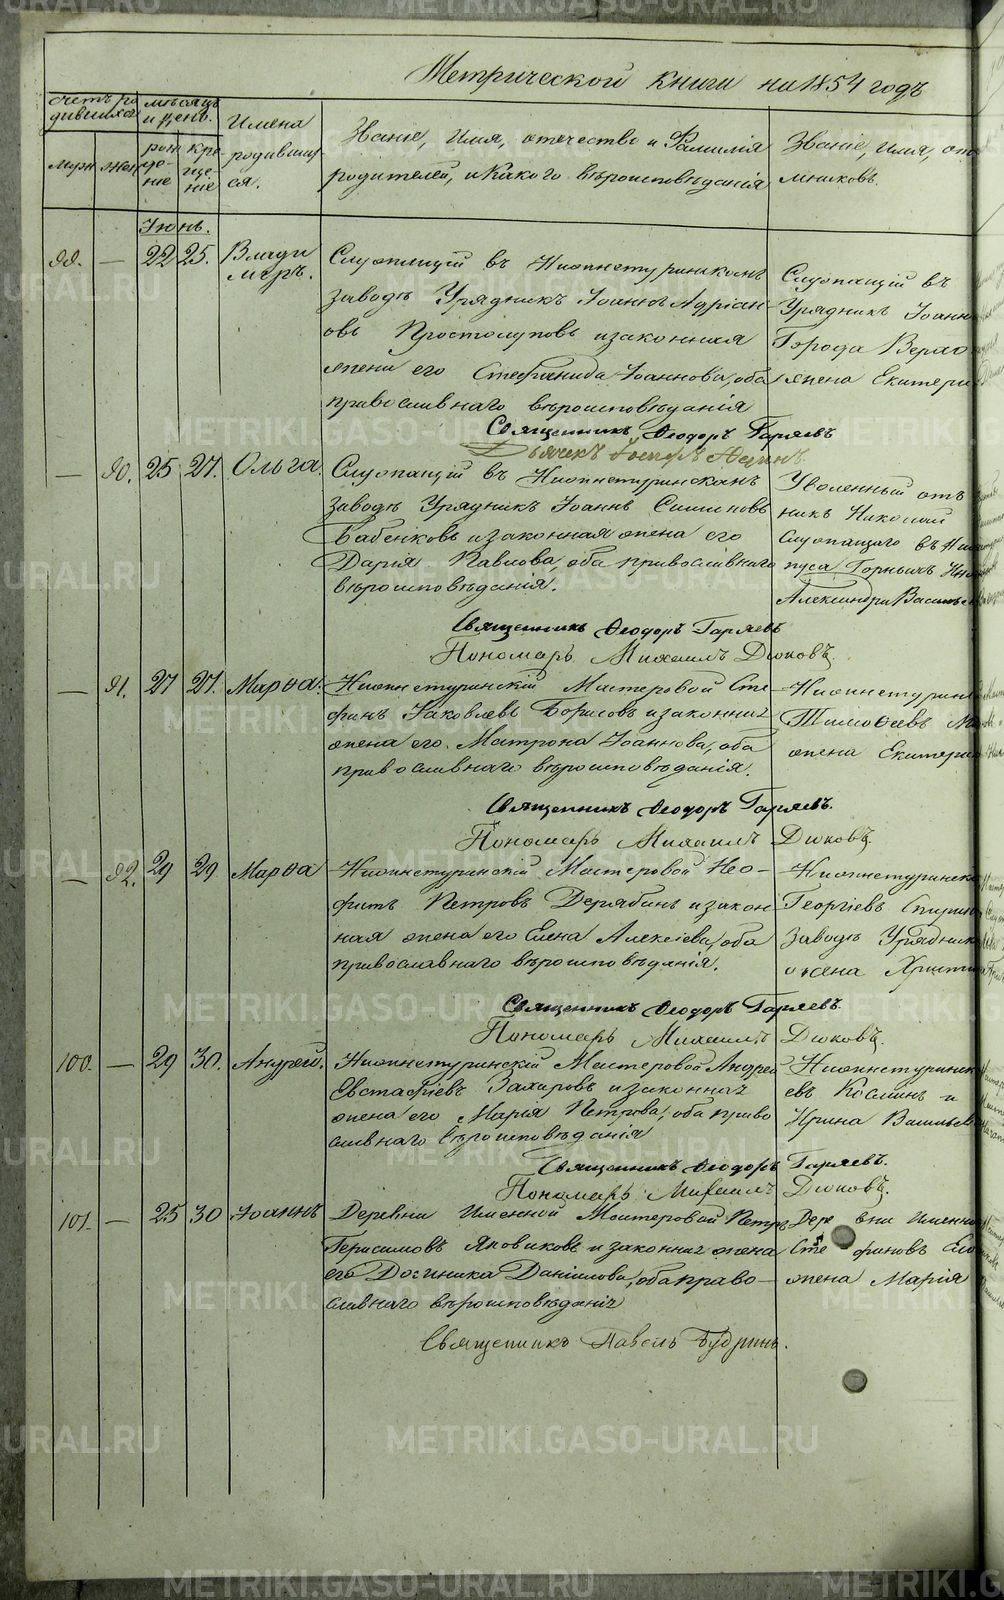 Метрической книги на 1854 годъ
Счетъ ро
дившихся
Муж
Жен
мѣсяцъ
и день.
рож
де-
ніе
кре
ще
ніе
Имена
родивших
ся.
Званіе, имя, отечество и Фамилія
родителей, и какого вѣроисповѣданія
Званіе, имя, оте
мниковъ.
Іюнь.
99.
—
22
25.
Влади
міръ.
Служащій въ Нижнетуринскомъ
заводѣ Урядникъ Іоаннъ Адріан-
овъ Простолуповъ и законная
жена его Стефанида Іоаннова, оба
православнаго вѣроисповѣданія
Священникъ Ѳеодоръ Гаряевъ
Дьячекъ
Служащій въ
Урядникъ Іоанн
Города Верхо
жена Екатери
—
90.
25
27.
Ольга.
Служащій въ Нижнетуринскомъ
заводѣ Урядникъ Іоаннъ Симеоновъ
Бабенковъ и законная жена его
Дарія Павлова, оба православнаго
вѣроисповѣданія.
Священникъ Ѳеодоръ Гаряевъ
Пономарь Михаилъ Дюковъ.
Уволенный отъ
никъ Николай
Служащаго въ Ниж
пуса Горныхъ Инж
Александра Василье
—
91.
27
27.
Марѳа.
Нижнетуринскій Мастеровой Сте
фанъ Іаковлевъ Борисовъ и законная
жена его Матрона Іоаннова, оба
православнаго вѣроисповѣданія.
Священникъ Ѳеодоръ Гаряевъ.
Пономарь Михаилъ Дюковъ.
Нижнетурин
Тимоѳеевъ
жена Екатерин
—
92.
29
29
Марѳа
Нижнетуринскій Мастеровой Нео-
фитъ Петровъ Дерябинъ и закон-
ная жена его Елена Алексіева, оба
православнаго вѣроисповѣданія.
Священникъ Ѳеодоръ Гаряевъ.
Пономарь Михаилъ Дюковъ.
Нижнетуринск
Георгіевъ Спирин
заводѣ Урядника
жена Христин
100.
—
29
30.
Андрей.
Нижнетуринскій Мастеровой Андрей
Евстафіевъ Захаровъ и законная
жена его Марія Петрова, оба право
славнаго вѣроисповѣданія
Священникъ Ѳеодоръ Гаряевъ.
Пономарь Михаилъ Дюковъ.
Нижнетуринск
евъ Косминъ и
Ирина Василье
101.
—
25
30
Іоаннъ
Деревни Именной Мастеровой Петръ
Герасимовъ Яговиковъ и законная жена
его Домника Даніилова, оба право-
славнаго вѣроисповѣданія
Священникъ Павелъ Будринъ.
Деревни Именно
Стефановъ
жена Марія
METRIKI.GASO-URAL.RU